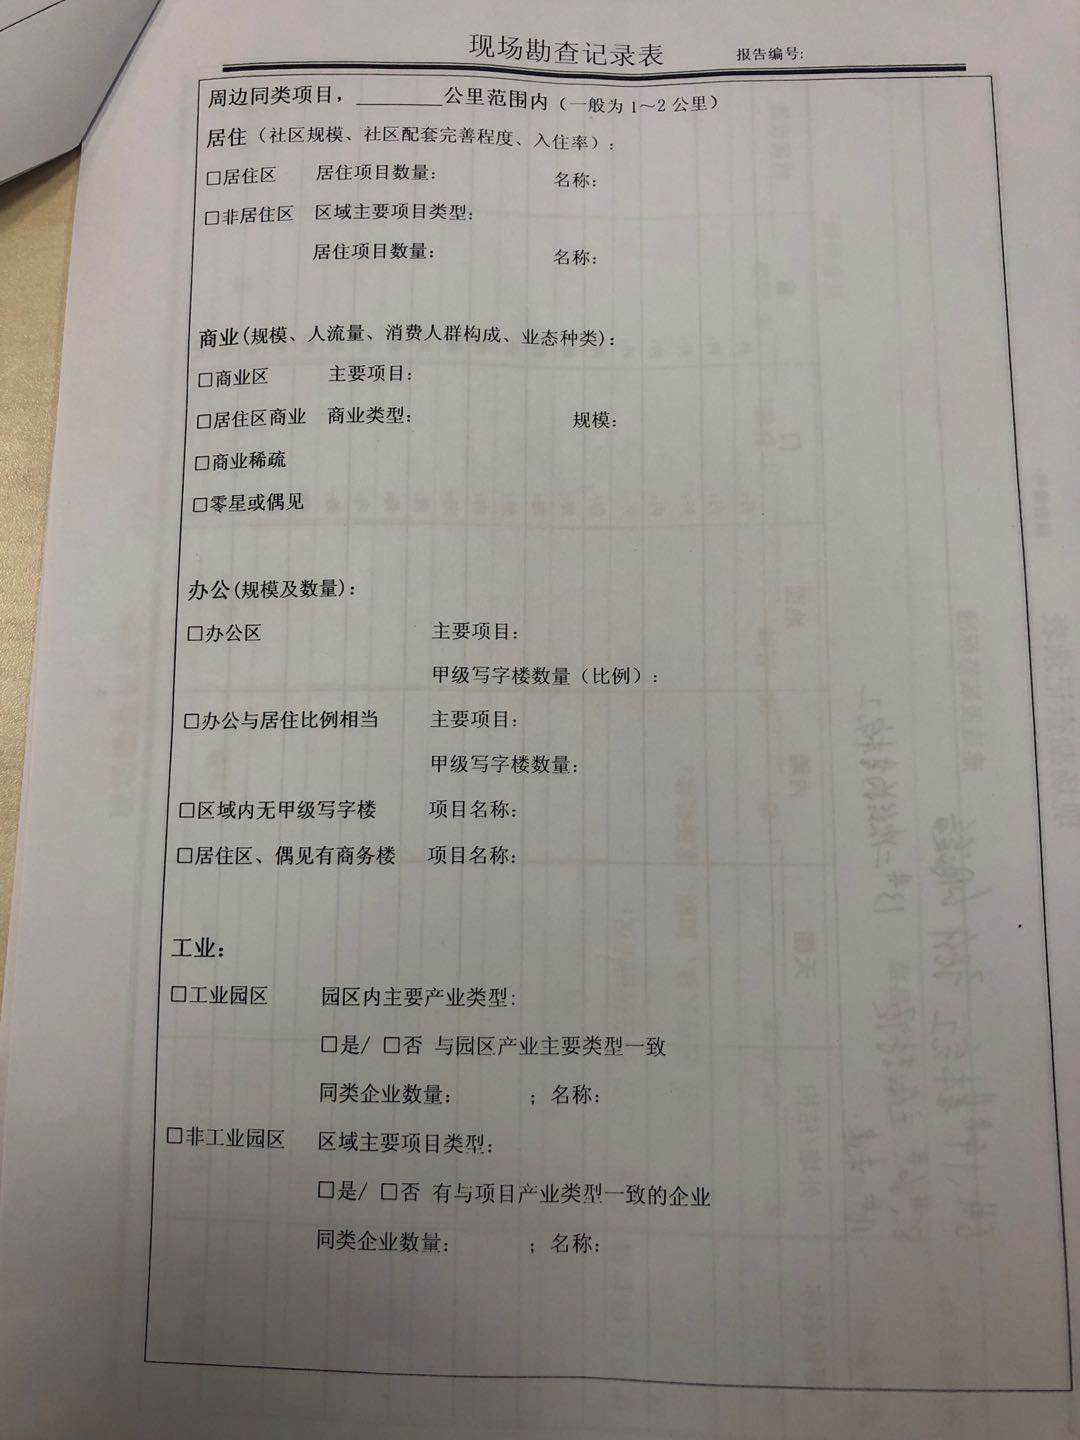 现场勘查记录表 报告编号:
周边同类项目，________公里范围内（一般为 1～2 公里）
居住（社区规模、社区配套完善程度、入住率）:
□居住区 居住项目数量: 名称:
□非居住区 区域主要项目类型:
居住项目数量: 名称:
商业(规模、人流量、消费人群构成、业态种类):
□商业区 主要项目:
□居住区商业 商业类型: 规模:
□商业稀疏
□零星或偶见
办公(规模及数量):
□办公区 主要项目:
甲级写字楼数量（比例）:
□办公与居住比例相当 主要项目:
甲级写字楼数量:
□区域内无甲级写字楼 项目名称:
□居住区、偶见有商务楼 项目名称:
工业:
□工业园区 园区内主要产业类型:
□是/ □否 与园区产业主要类型一致
同类企业数量: ; 名称:
□非工业园区 区域主要项目类型:
□是/ □否 有与项目产业类型一致的企业
同类企业数量: ; 名称: